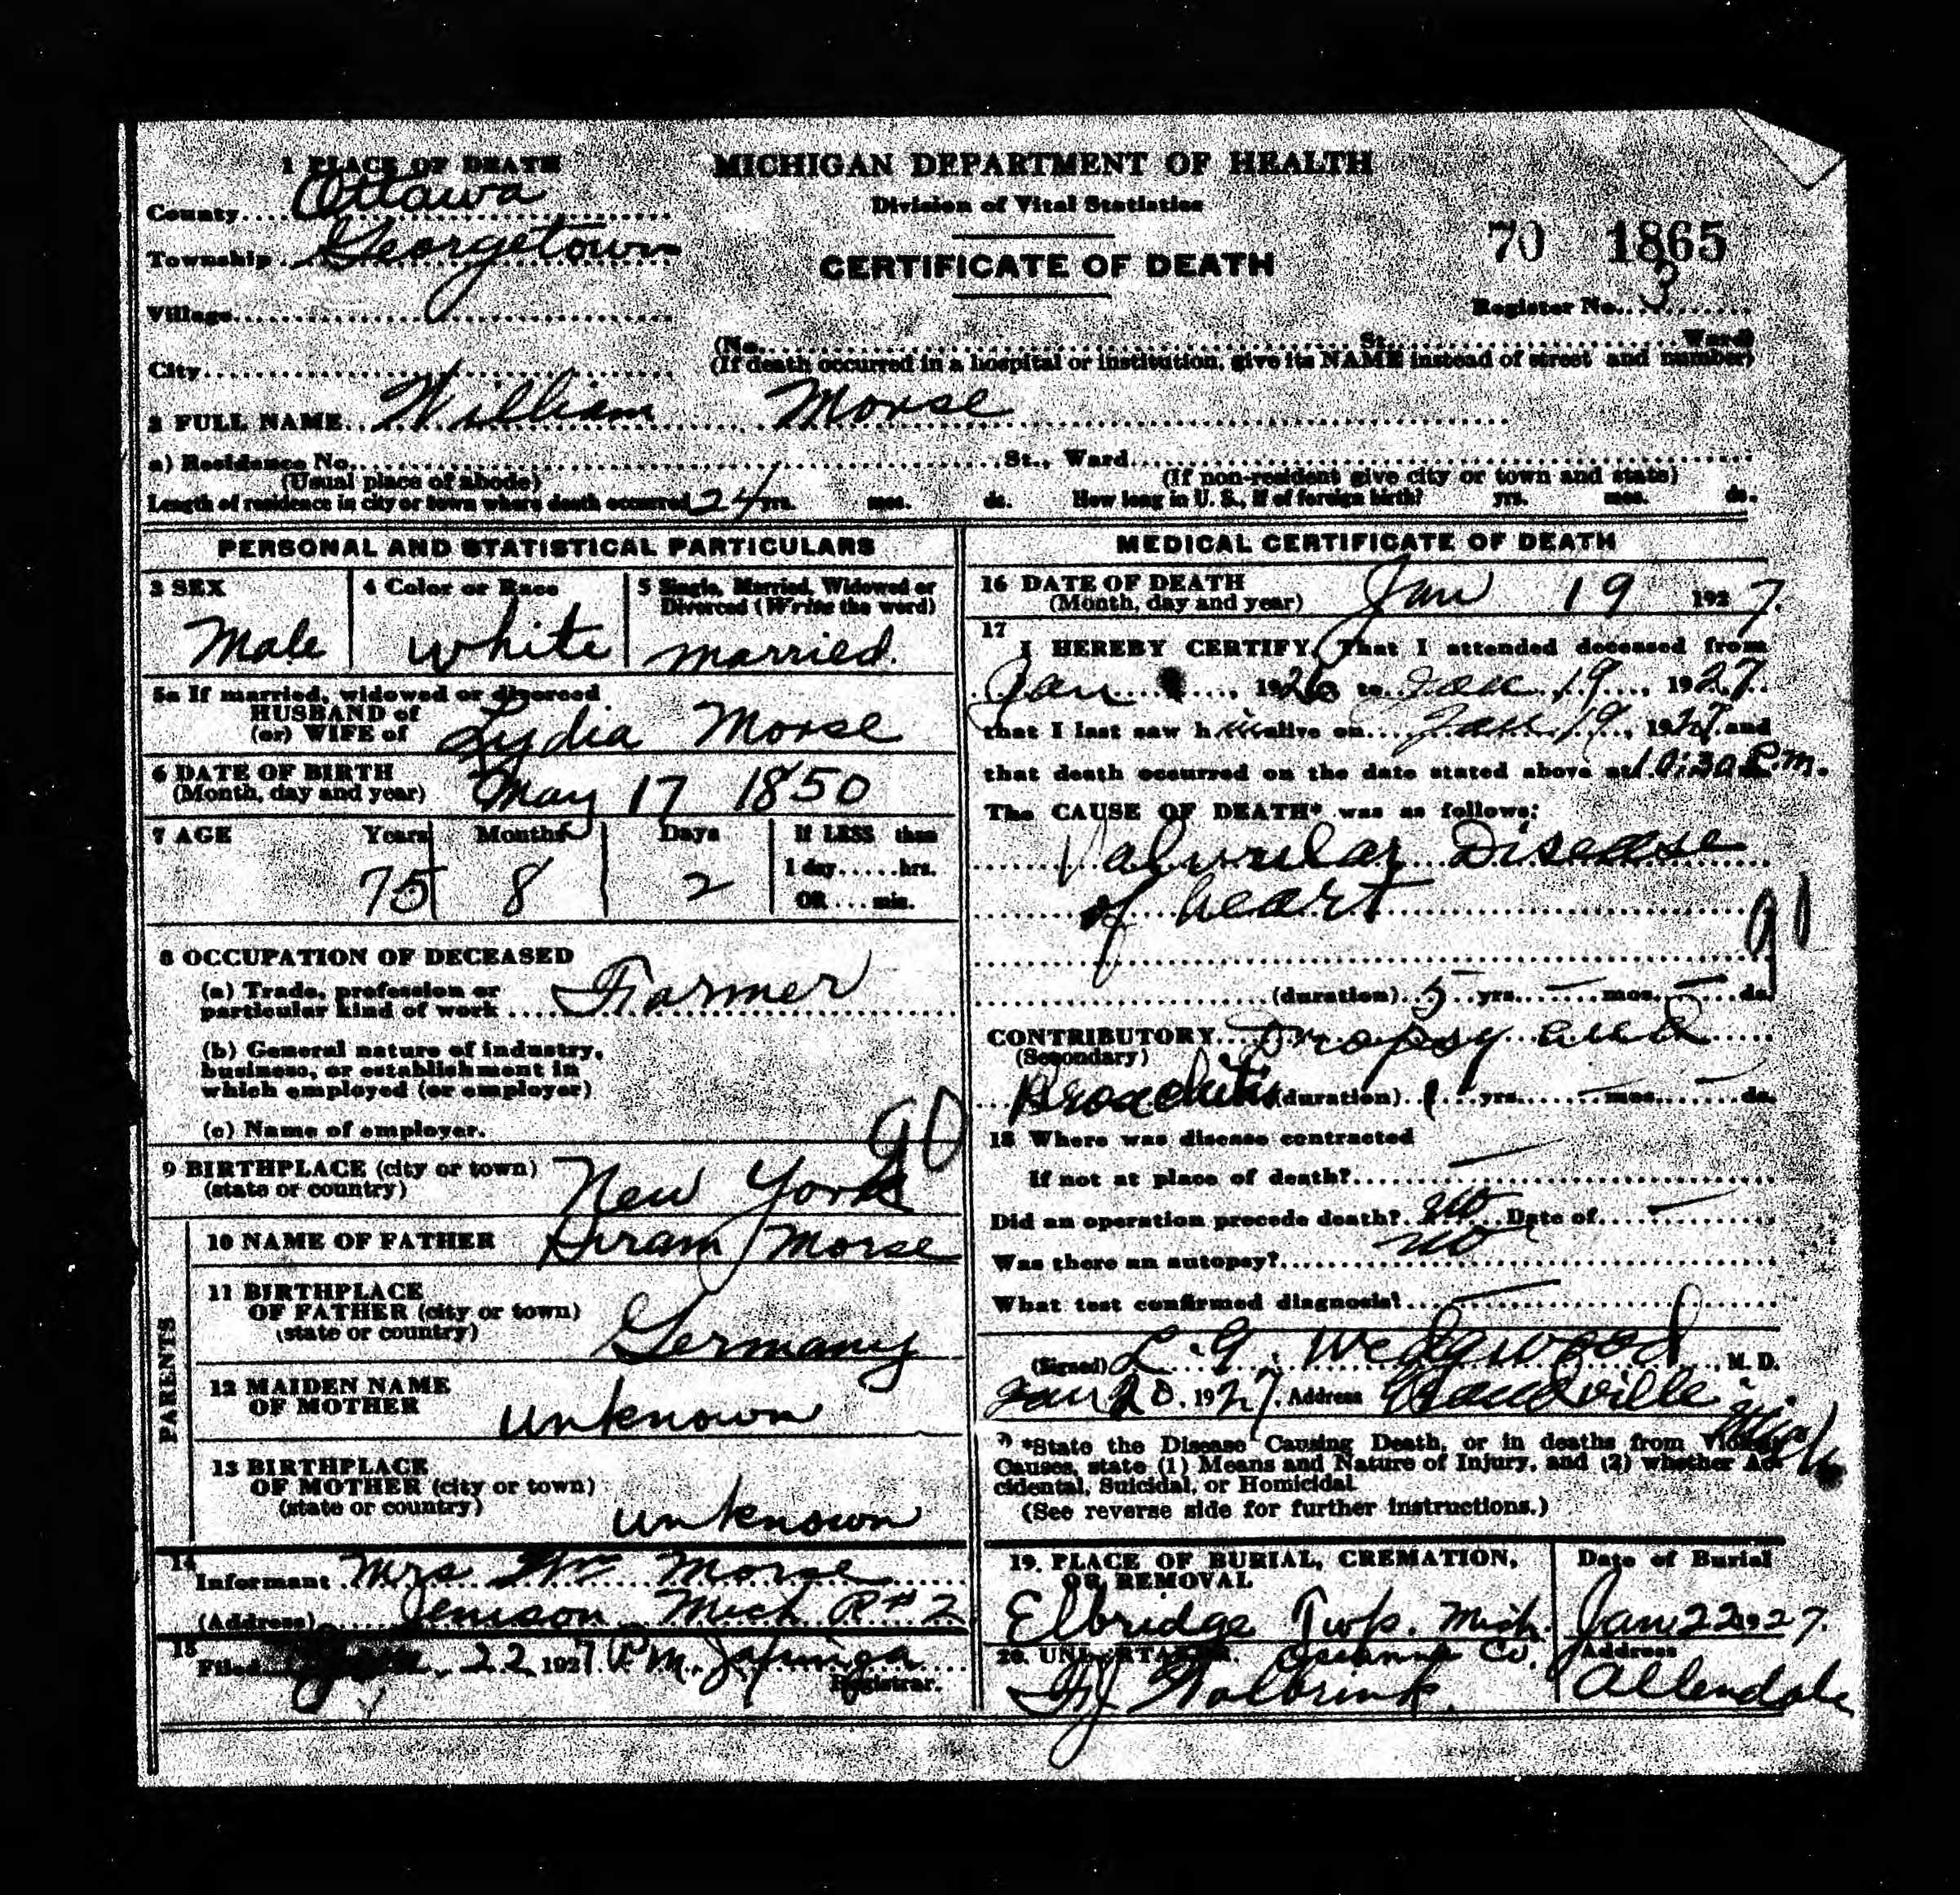 1 PLACE OF DEATH
County Ottawa
Township Georgetown
Village
City
MICHIGAN DEPARTMENT OF HEALTH
Division of Vital Statistics
CERTIFICATE OF DEATH
70 1865
Register No. 3
(No. St. Ward)
(If death occurred in a hospital or institution, give its NAME instead of street and number)
2 FULL NAME William Morse
a) Residence No. St., Ward
(Usual place of abode) (If non-resident give city or town and state)
Length of residence in city or town where death occurred 24 yrs. mos. ds. How long in U. S., if of foreign birth? yrs. mos. ds.
PERSONAL AND STATISTICAL PARTICULARS
3 SEX
Male
4 Color or Race
white
5 Single, Married, Widowed or
Divorced (Write the word)
married.
5a If married, widowed or divorced
HUSBAND of
(or) WIFE of Lydia Morse
6 DATE OF BIRTH
(Month, day and year) May 17 1850
7 AGE Years Months Days If LESS than
1 day......hrs.
75 8 2
OR....min.
8 OCCUPATION OF DECEASED
(a) Trade, profession or
particular kind of work Farmer
(b) General nature of industry,
business, or establishment in
which employed (or employer)
(c) Name of employer.
90
9 BIRTHPLACE (city or town)
(state or country) New York
PARENTS
10 NAME OF FATHER Hiram Morse
11 BIRTHPLACE
OF FATHER (city or town)
(state or country) Germany
12 MAIDEN NAME
OF MOTHER unknown
13 BIRTHPLACE
OF MOTHER (city or town)
(state or country) unknown
14
Informant Mrs Wm Morse
(Address) Jenison Mich R#2
15
Filed Jan. 22 1927. P.M.
Registrar.
MEDICAL CERTIFICATE OF DEATH
16 DATE OF DEATH
(Month, day and year) Jan 19 1927.
17
I HEREBY CERTIFY, That I attended deceased from
Jan 1926 to Jan 19, 1927.
that I last saw him alive on Jan 19, 1927 and
that death occurred on the date stated above at 10:30 P.m.
The CAUSE OF DEATH* was as follows:
Valvular Disease
of heart
90
(duration) 5 yrs. — mos. — ds.
CONTRIBUTORY Dropsy and
(Secondary)
Bronchitis (duration) 1 yrs. — mos. — ds.
18 Where was disease contracted
If not at place of death? —
Did an operation precede death? no Date of —
Was there an autopsy? no
What test confirmed diagnosis? —
(Signed) L. G. Wedgwood, M. D.
Jan 20. 1927. Address Grandville Mich
*State the Disease Causing Death, or in deaths from Violent
Causes, state (1) Means and Nature of Injury, and (2) whether Ac-
cidental, Suicidal, or Homicidal
(See reverse side for further instructions.)
19. PLACE OF BURIAL, CREMATION,
OR REMOVAL
Elbridge Twp. Mich.
Oceana Co.
Date of Burial
Jan 22 1927.
20. UNDERTAKER.
Wolbrink.
Address
Allendale